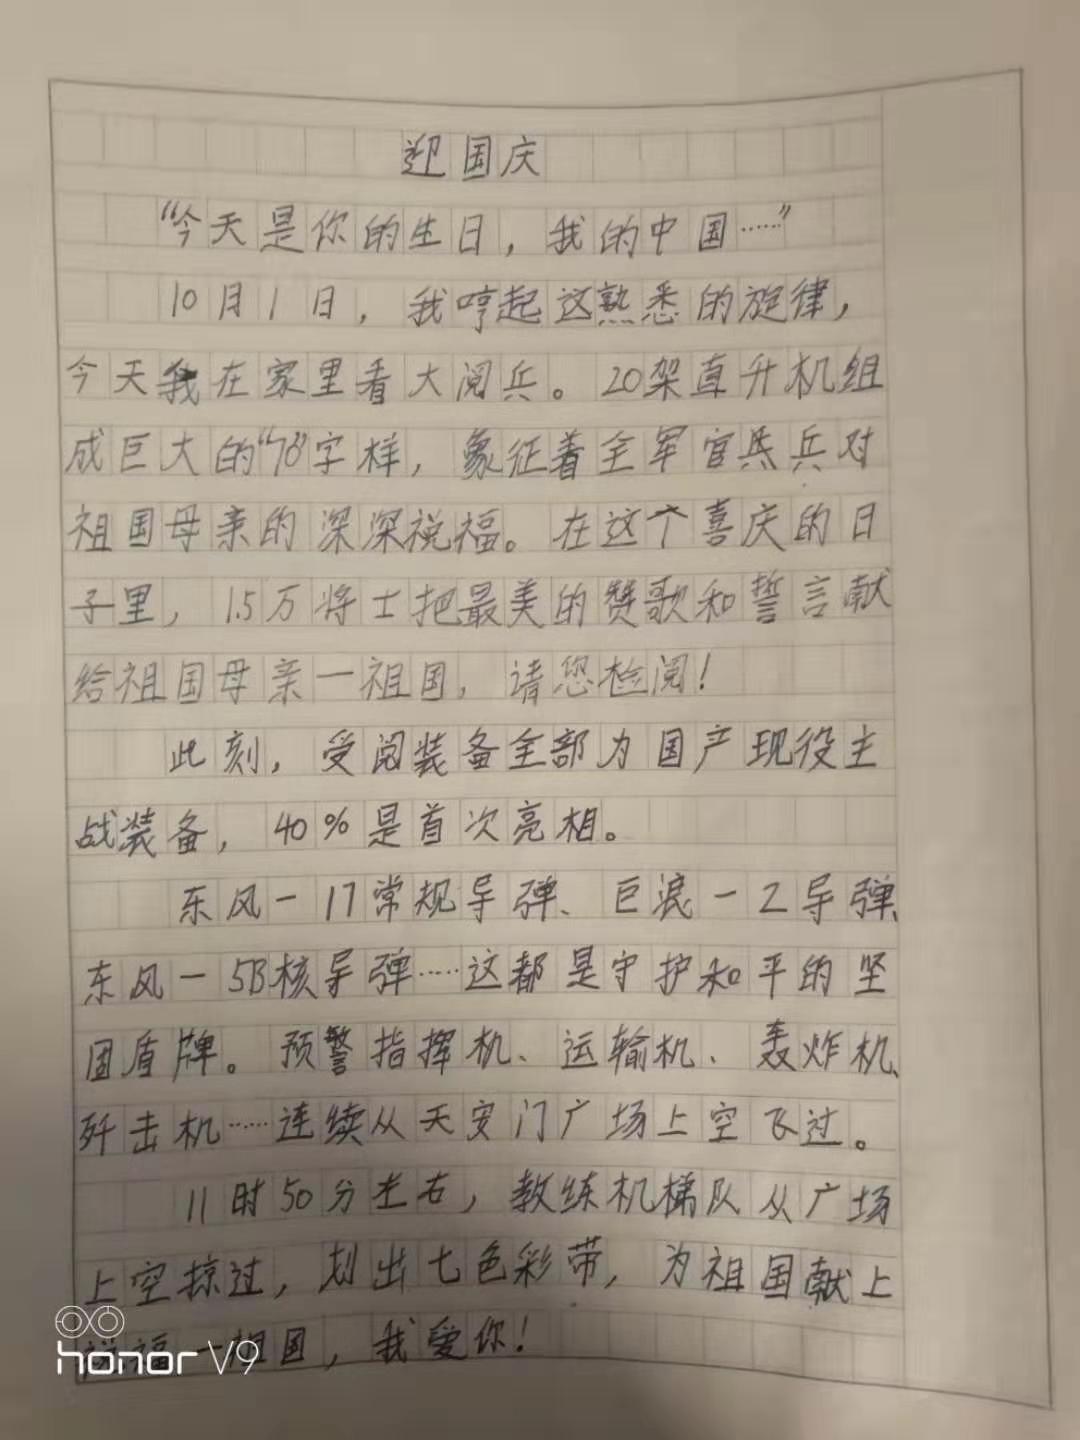 迎国庆
“今天是你的生日，我的中国……”
10月1日，我哼起这熟悉的旋律，
今天我在家里看大阅兵。20架直升机组
成巨大的“70”字样，象征着全军官兵兵对
祖国母亲的深深祝福。在这个喜庆的日
子里，1.5万将士把最美的赞歌和誓言献
给祖国母亲一祖国，请您检阅！
此刻，受阅装备全部为国产现役主
战装备，40%是首次亮相。
东风－17常规导弹、巨浪－2导弹、
东风－5B核导弹……这都是守护和平的坚
固盾牌。预警指挥机、运输机、轰炸机、
歼击机……连续从天安门广场上空飞过。
11时50分左右，教练机梯队从广场
上空掠过，划出七色彩带，为祖国献上
祝福一祖国，我爱你！
honor V9